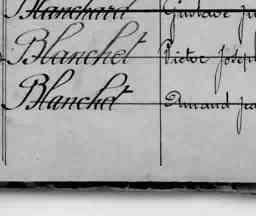 Blanchard Gustave
Blanchet Victor Joseph
Blanchot Armand